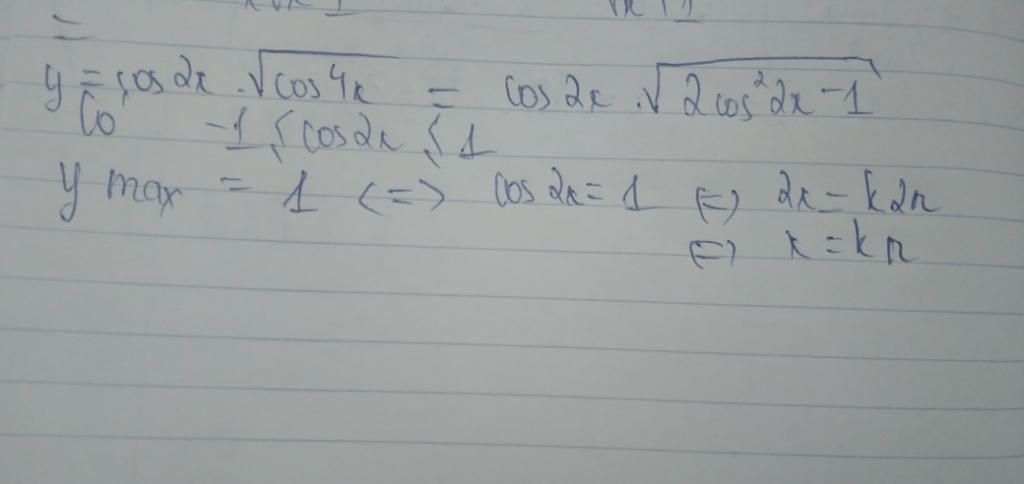 =
y = cos2x . √cos4x = cos2x . √2cos²2x - 1
Có -1 ≤ cos2x ≤ 1
y max = 1 <=> cos2x = 1 <=> 2x = k2π
<=> x = kπ